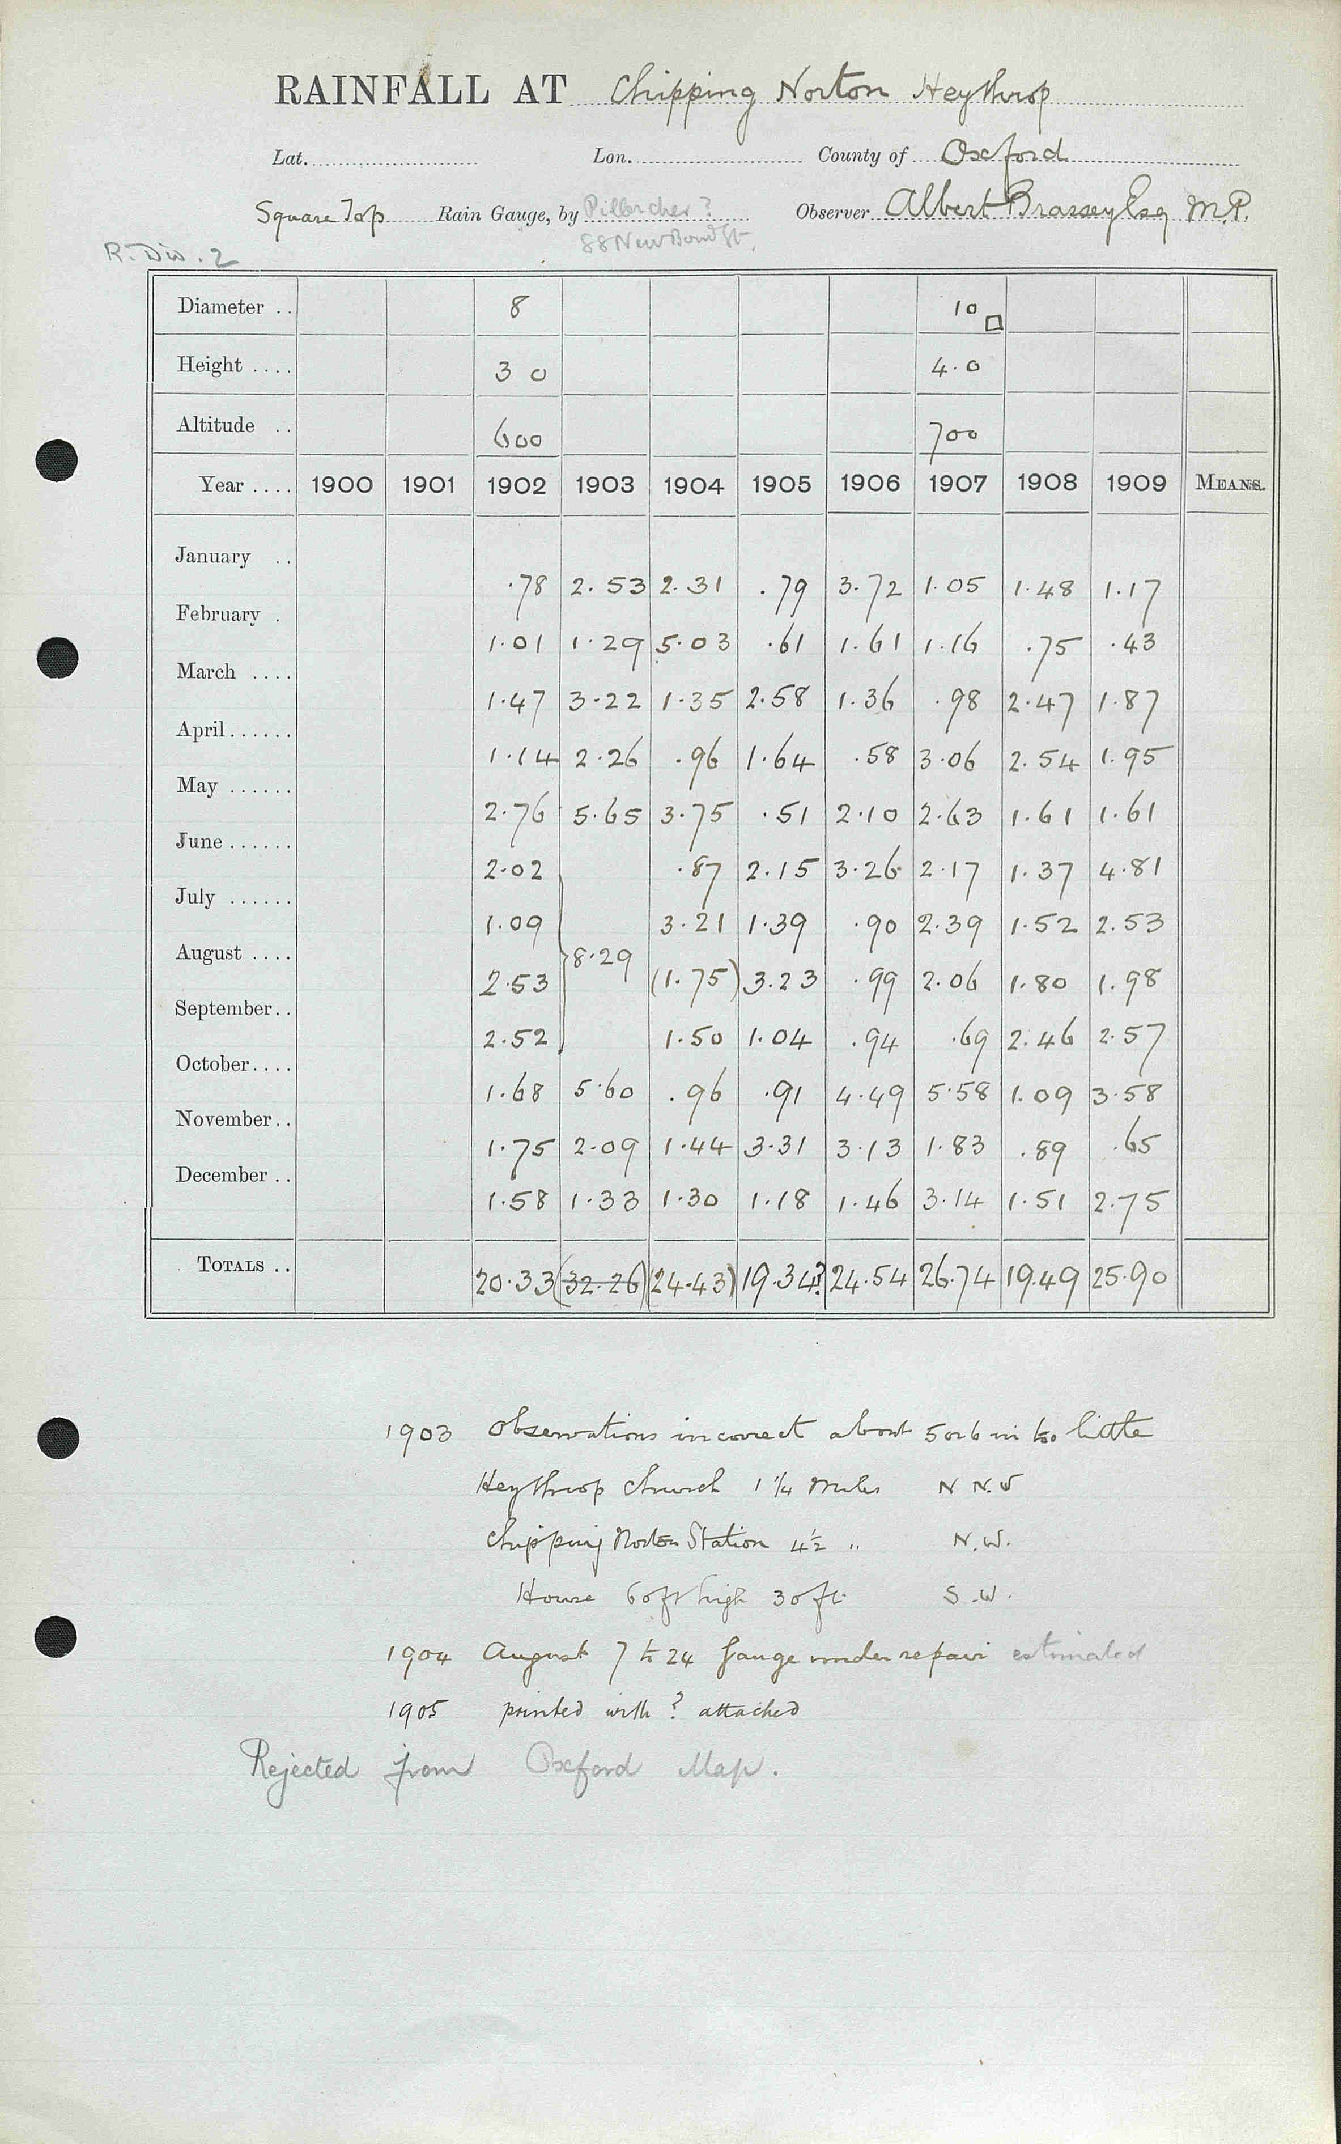 RAINFALL AT Chipping Norton Heythrop
Lat. Lon. County of Oxford
Square Top Rain Gauge, by Pillischer? Observer Albert Brassey Esq M.P.
88 New Bond St.
R. Div. 2
Diameter .. 8 10 □
Height .... 3 0 4·0
Altitude .. 600 700
Year .... 1900 1901 1902 1903 1904 1905 1906 1907 1908 1909 MEANS.
January .. ·78 2.53 2.31 .79 3.72 1.05 1.48 1.17
February . 1.01 1.29 5.03 .61 1.61 1.16 .75 .43
March .... 1.47 3.22 1.35 2.58 1.36 .98 2.47 1.87
April...... 1.14 2.26 .96 1.64 .58 3.06 2.54 1.95
May ...... 2.76 5.65 3.75 .51 2.10 2.63 1.61 1.61
June...... 2.02 .87 2.15 3.26 2.17 1.37 4.81
July ...... 1.09 3.21 1.39 .90 2.39 1.52 2.53
August .... 2.53 } 8.29 (1.75) 3.23 .99 2.06 1.80 1.98
September.. 2.52 1.50 1.04 .94 .69 2.46 2.57
October.... 1.68 5.60 .96 .91 4.49 5.58 1.09 3.58
November.. 1.75 2.09 1.44 3.31 3.13 1.83 .89 .65
December .. 1.58 1.33 1.30 1.18 1.46 3.14 1.51 2.75
TOTALS .. 20.33 (32.26) (24.43) 19.34? 24.54 26.74 19.49 25.90
1903 Observations incorrect about 5 or 6 in too little
Heythrop Church 1 1/4 miles N N.W
Chipping Norton Station 4½ " N.W.
House 60ft high 30 ft S.W.
1904 August 7 to 24 gauge under repair estimated
1905 printed with ? attached
Rejected from Oxford Map.